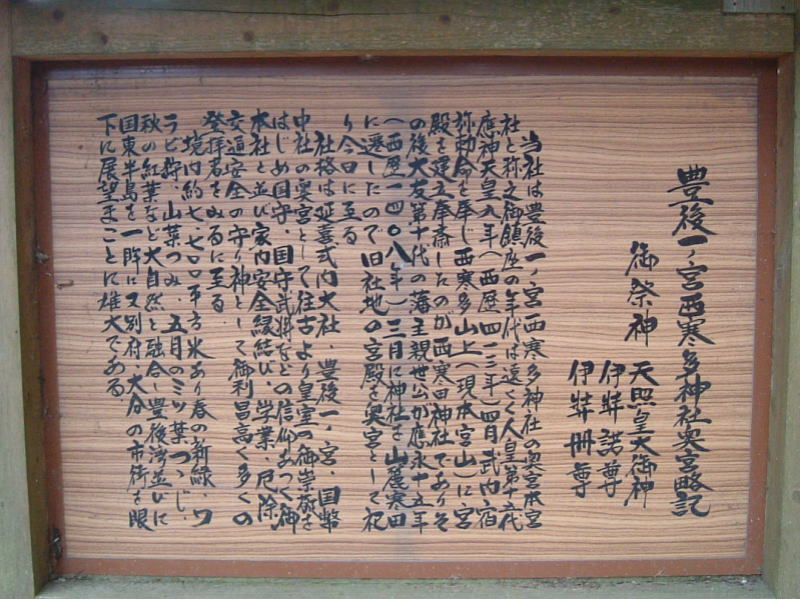 豊後一ノ宮西寒多神社奥宮略記
御祭神
天照皇大御神
伊弉諾尊
伊弉冊尊
当社は豊後一ノ宮西寒多神社の奥宮本宮
社と称え御鎮座の年代は遠く人皇第十五代
應神天皇九年(西歴四一三年)四月武内宿
祢勅命を奉じ西寒多山上(現本宮山)に宮
殿を建立奉斎したのが西寒田神社でありそ
の後大友第十代の藩主親世公が應永十五年
(西歴一四〇八年)三月に神社を山麓寒田
に遷したので旧社地の宮殿を奥宮として祀
り今日に至る
社格は延喜式内大社、豊後一ノ宮、国幣
中社の奥宮として往古より皇室の御崇敬を
はじめ国守、国守武将などの信仰あつく御
本社と並び家内安全縁結び、学業、厄除
交通安全の守り神として御利昌高く多くの
登拝者をみるに至る
境内約七、七〇〇平方米あり春の新緑、ワ
ラビ狩、山菜つみ、五月のミツ葉つゝじ、
秋の紅葉など大自然と融合し豊後湾並びに
国東半島を一眸に又別府、大分の市街を眼
下に展望まことに雄大である